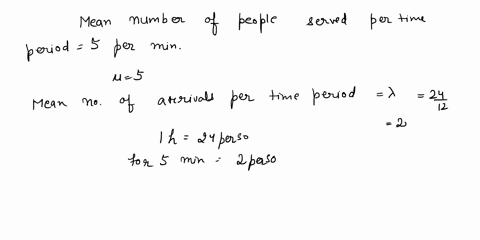 Mean number of people served per time
period = 5 per min.
u=5
Mean no. of arrivals per time period = λ = 24/12
= 2
1 h = 24 perso
for 5 min = 2 perso